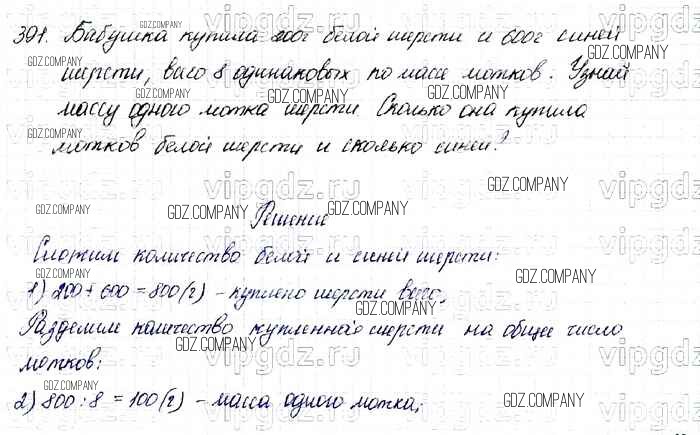 391. Бабушка купила 200г белой шерсти и 600г синей
шерсти, всего 8 одинаковых по массе мотков. Узнай
массу одного мотка шерсти. Сколько она купила
мотков белой шерсти и сколько синей?
Решение
Сложим количество белой и синей шерсти:
1) 200 + 600 = 800 (г) – куплено шерсти всего;
Разделим количество купленной шерсти на общее число
мотков:
2) 800 : 8 = 100 (г) – масса одного мотка;
vipgdz.ru
GDZ.COMPANY